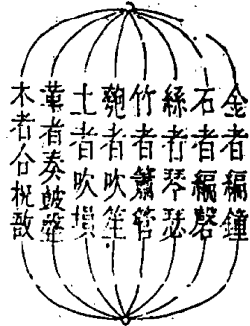 金者編鐘
石者編磬
絲者琴瑟
竹者簫管
匏者吹笙
土者吹塤
革者奏皷鼙
木者合柷敔